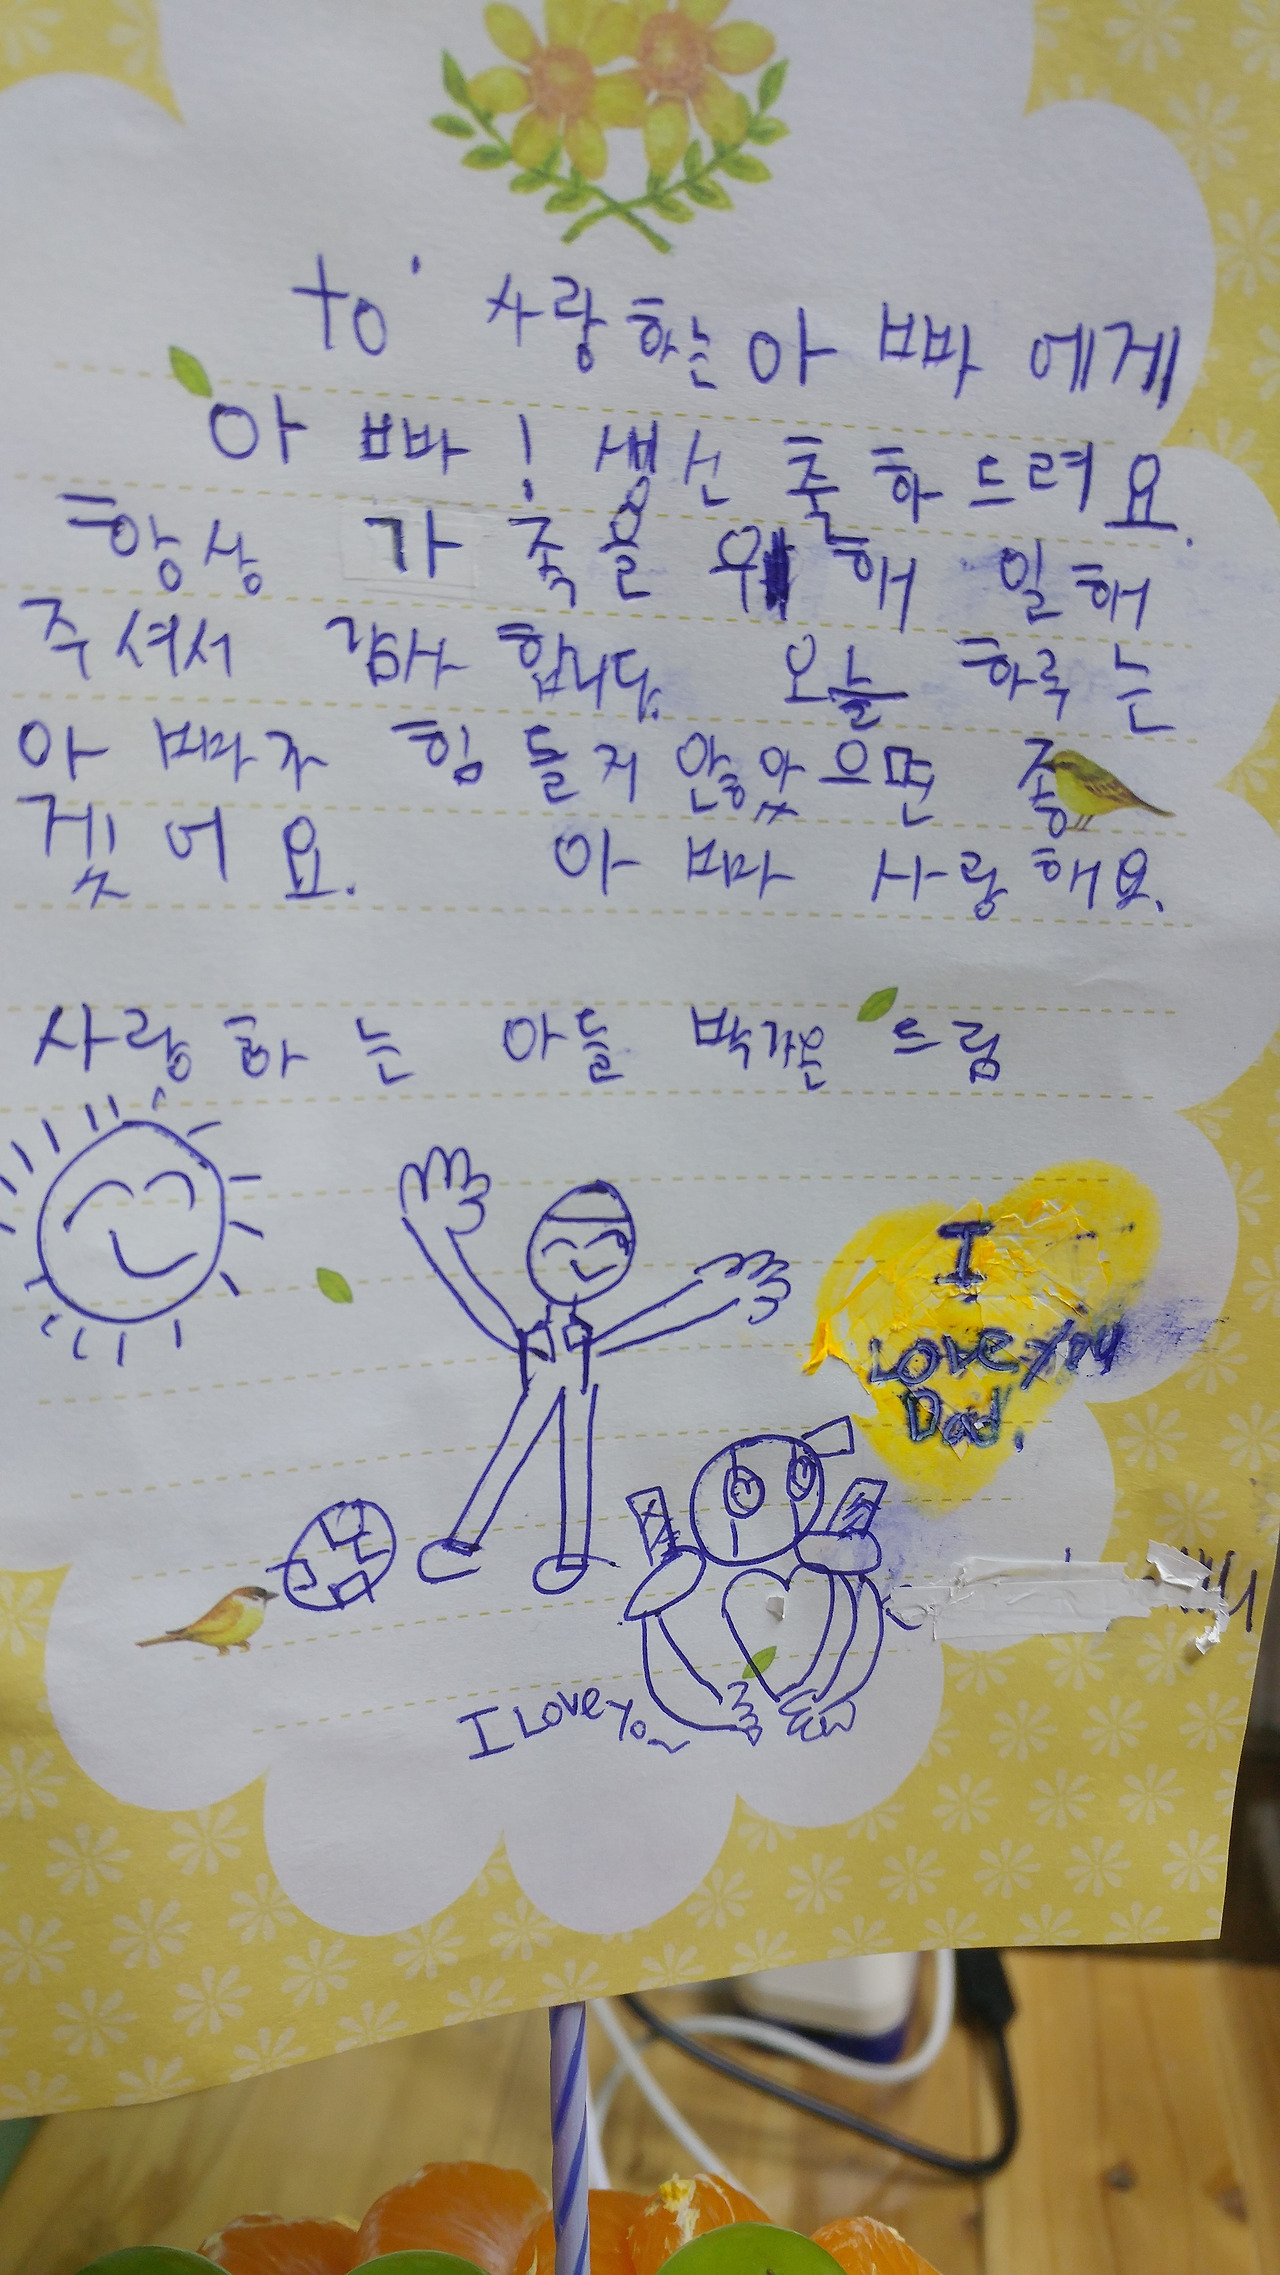 to. 사랑하는 아빠에게
아빠! 생신 축하드려요.
항상 가족을 위해 일해
주셔서 감사합니다. 오늘 하루는
아빠가 힘들지 않았으면 좋
겟어요. 아빠 사랑해요.
사랑하는 아들 드림
I
Love you
Dad.
I Love yo~